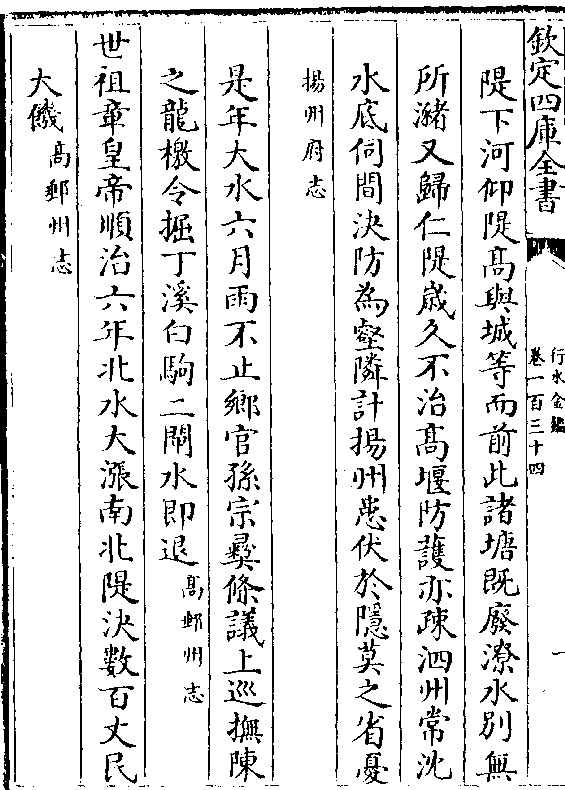 欽定四庫全書
行水金鑑
卷一百三十四
一
隄下河仰隄髙與城等而前此諸塘既廢潦水别無
所瀦又歸仁隄歳久不治髙堰防護亦疎泗州常沈
水底伺間決防為壑隣計揚州患伏於隱莫之省憂
揚州府志
是年大水六月雨不止鄉官孫宗彞條議上巡撫陳
之龍檄令掘丁溪白駒二閘水即退髙郵州志
世祖章皇帝順治六年北水大漲南北隄決數百丈民
大饑髙郵州志